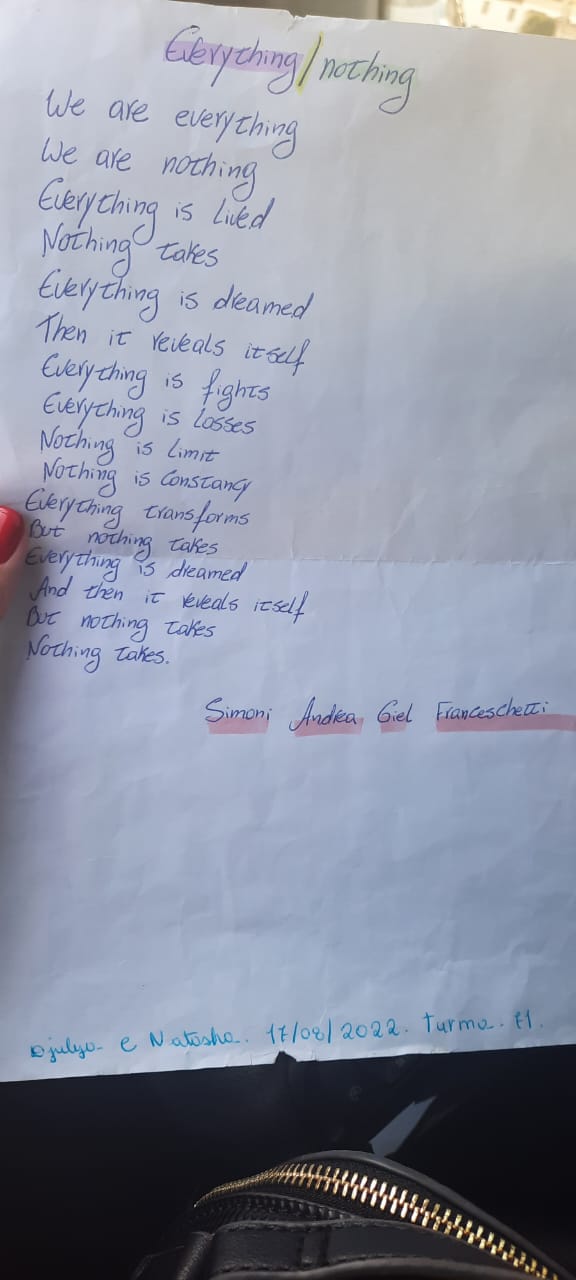 Everything/nothing
We are everything
We are nothing
Everything is lived
Nothing takes
Everything is dreamed
Then it reveals itself
Everything is fights
Everything is losses
Nothing is limit
Nothing is constancy
Everything transforms
But nothing takes
Everything is dreamed
And then it reveals itself
But nothing takes
Nothing takes.
Simoni Andrea Giel Franceschetti
Djulya e Natasha. 17/08/2022. Turma. 71.